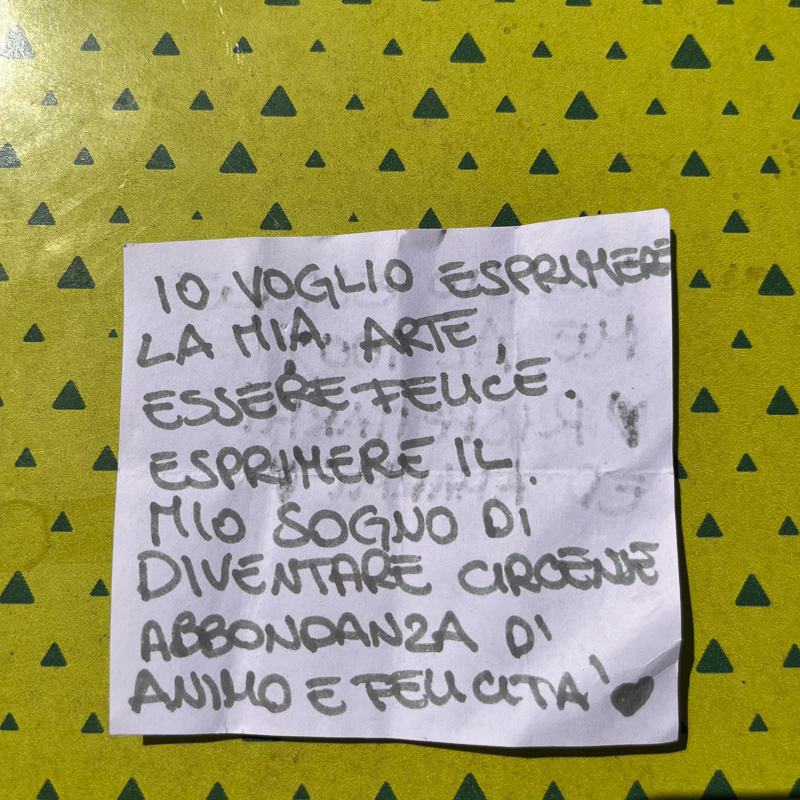 IO VOGLIO ESPRIMERE
LA MIA ARTE,
ESSERE FELICE.
ESPRIMERE IL
MIO SOGNO DI
DIVENTARE CIRCENSE
ABBONDANZA DI
ANIMO E FELICITA' ♥